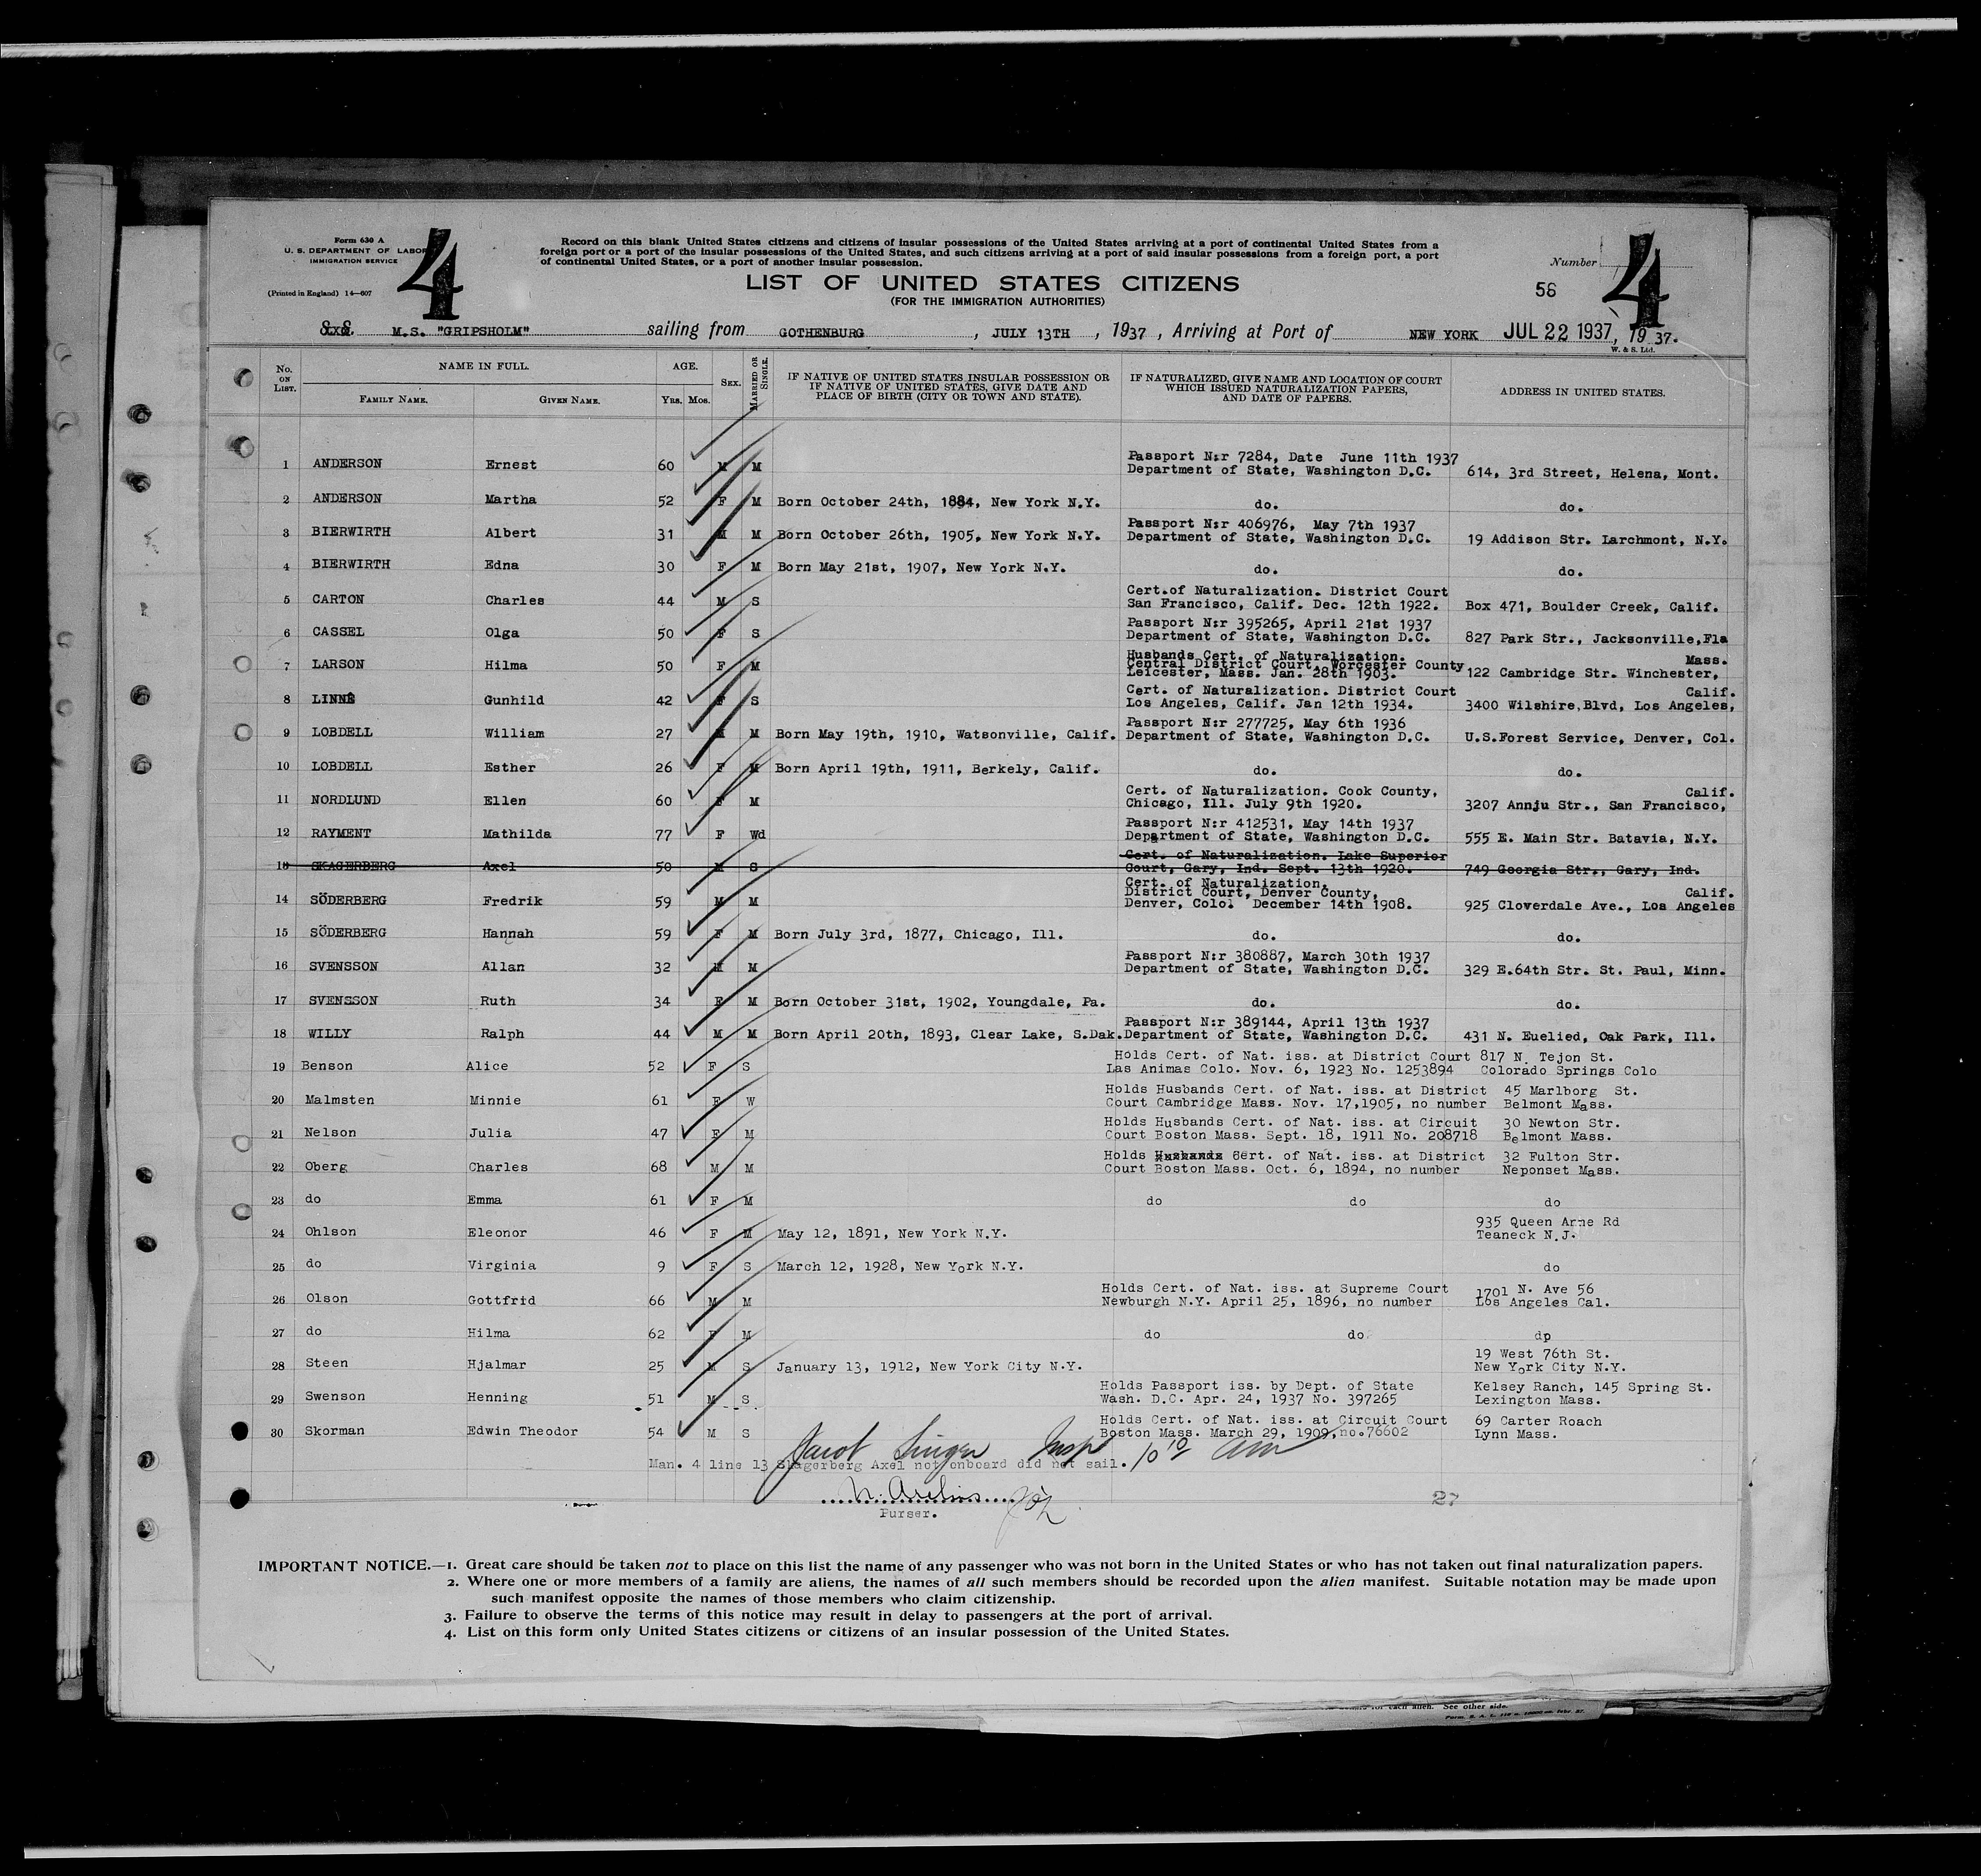 Form 630 A
U. S. DEPARTMENT OF LABOR
IMMIGRATION SERVICE
(Printed in England) 14—607
4
Record on this blank United States citizens and citizens of insular possessions of the United States arriving at a port of continental United States from a
foreign port or a port of the insular possessions of the United States, and such citizens arriving at a port of said insular possessions from a foreign port, a port
of continental United States, or a port of another insular possession.
LIST OF UNITED STATES CITIZENS
(FOR THE IMMIGRATION AUTHORITIES)
Number
4
56
S.S. M.S. "GRIPSHOLM" sailing from GOTHENBURG, JULY 13TH, 1937, Arriving at Port of NEW YORK JUL 22 1937, 1937.
W. & S. Ltd.
No. ON LIST. NAME IN FULL. FAMILY NAME. GIVEN NAME. AGE. Yrs. Mos. SEX. MARRIED OR SINGLE.
IF NATIVE OF UNITED STATES INSULAR POSSESSION OR
IF NATIVE OF UNITED STATES, GIVE DATE AND
PLACE OF BIRTH (CITY OR TOWN AND STATE).
IF NATURALIZED, GIVE NAME AND LOCATION OF COURT
WHICH ISSUED NATURALIZATION PAPERS,
AND DATE OF PAPERS.
ADDRESS IN UNITED STATES.
Passport N:r 7284, Date June 11th 1937
1 ANDERSON Ernest 60 M M Department of State, Washington D.C. 614, 3rd Street, Helena, Mont.
2 ANDERSON Martha 52 F M Born October 24th, 1884, New York N.Y. do. do.
Passport N:r 406976, May 7th 1937
3 BIERWIRTH Albert 31 M M Born October 26th, 1905, New York N.Y. Department of State, Washington D.C. 19 Addison Str. Larchmont, N.Y.
4 BIERWIRTH Edna 30 F M Born May 21st, 1907, New York N.Y. do. do.
Cert.of Naturalization. District Court
5 CARTON Charles 44 M S San Francisco, Calif. Dec. 12th 1922. Box 471, Boulder Creek, Calif.
Passport N:r 395265, April 21st 1937
6 CASSEL Olga 50 F S Department of State, Washington D.C. 827 Park Str., Jacksonville,Fla
Husbands Cert. of Naturalization.
Central District Court, Worcester County Mass.
7 LARSON Hilma 50 F M Leicester, Mass. Jan. 28th 1903. 122 Cambridge Str. Winchester,
Cert. of Naturalization. District Court Calif.
8 LINNÉ Gunhild 42 F S Los Angeles, Calif. Jan 12th 1934. 3400 Wilshire,Blvd, Los Angeles,
Passport N:r 277725, May 6th 1936
9 LOBDELL William 27 M M Born May 19th, 1910, Watsonville, Calif. Department of State, Washington D.C. U.S.Forest Service, Denver, Col.
10 LOBDELL Esther 26 F M Born April 19th, 1911, Berkely, Calif. do. do.
Cert. of Naturalization. Cook County, Calif.
11 NORDLUND Ellen 60 F M Chicago, Ill. July 9th 1920. 3207 Annju Str., San Francisco,
Passport N:r 412531, May 14th 1937
12 RAYMENT Mathilda 77 F Wd Department of State, Washington D.C. 555 E. Main Str. Batavia, N.Y.
Cert. of Naturalization. Lake Superior
13 SKAGERBERG Axel 50 M S Court, Gary, Ind. Sept. 13th 1920. 749 Georgia Str., Gary, Ind.
Cert. of Naturalization,
District Court, Denver County, Calif.
14 SÖDERBERG Fredrik 59 M M Denver, Colo. December 14th 1908. 925 Cloverdale Ave., Los Angeles
15 SÖDERBERG Hannah 59 F M Born July 3rd, 1877, Chicago, Ill. do. do.
Passport N:r 380887, March 30th 1937
16 SVENSSON Allan 32 M M Department of State, Washington D.C. 329 E.64th Str. St. Paul, Minn.
17 SVENSSON Ruth 34 F M Born October 31st, 1902, Youngdale, Pa. do. do.
Passport N:r 389144, April 13th 1937
18 WILLY Ralph 44 M M Born April 20th, 1893, Clear Lake, S.Dak. Department of State, Washington D.C. 431 N. Euelied, Oak Park, Ill.
Holds Cert. of Nat. iss. at District Court 817 N. Tejon St.
19 Benson Alice 52 F S Las Animas Colo. Nov. 6, 1923 No. 1253894 Colorado Springs Colo
Holds Husbands Cert. of Nat. iss. at District 45 Marlborg St.
20 Malmsten Minnie 61 F W Court Cambridge Mass. Nov. 17,1905, no number Belmont Mass.
Holds Husbands Cert. of Nat. iss. at Circuit 30 Newton Str.
21 Nelson Julia 47 F M Court Boston Mass. Sept. 18, 1911 No. 208718 Belmont Mass.
Holds Husbands Cert. of Nat. iss. at District 32 Fulton Str.
22 Oberg Charles 68 M M Court Boston Mass. Oct. 6, 1894, no number Neponset Mass.
23 do Emma 61 F M do do do
935 Queen Anne Rd
24 Ohlson Eleonor 46 F M May 12, 1891, New York N.Y. Teaneck N.J.
25 do Virginia 9 F S March 12, 1928, New York N.Y. do
Holds Cert. of Nat. iss. at Supreme Court 1701 N. Ave 56
26 Olson Gottfrid 66 M M Newburgh N.Y. April 25, 1896, no number Los Angeles Cal.
27 do Hilma 62 F M do do dp
19 West 76th St.
28 Steen Hjalmar 25 M S January 13, 1912, New York City N.Y. New York City N.Y.
Holds Passport iss. by Dept. of State Kelsey Ranch, 145 Spring St.
29 Swenson Henning 51 M S Wash. D.C. Apr. 24, 1937 No. 397265 Lexington Mass.
Holds Cert. of Nat. iss. at Circuit Court 69 Carter Roach
30 Skorman Edwin Theodor 54 M S Boston Mass. March 29, 1909,no.76602 Lynn Mass.
Jacob Singer Insp 10 10 am
Man. 4 line 13 Skagerberg Axel not onboard did not sail.
27
Purser.
IMPORTANT NOTICE.—1. Great care should be taken not to place on this list the name of any passenger who was not born in the United States or who has not taken out final naturalization papers.
2. Where one or more members of a family are aliens, the names of all such members should be recorded upon the alien manifest. Suitable notation may be made upon
such manifest opposite the names of those members who claim citizenship.
3. Failure to observe the terms of this notice may result in delay to passengers at the port of arrival.
4. List on this form only United States citizens or citizens of an insular possession of the United States.
for each alien. See other side.